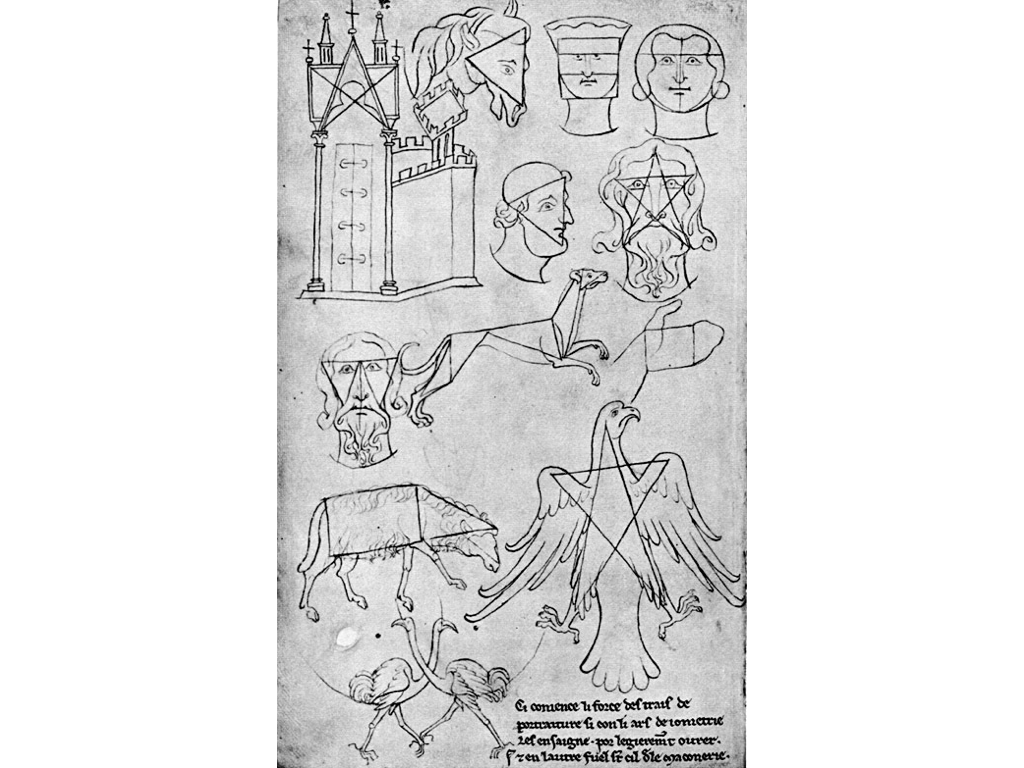 Ci comence li force des trais de
portraiture si con li ars de iometrie
les ensaigne · por legierem̄t ouvrer ·
⁊ en lautre fuel st cil dele maconerie ·